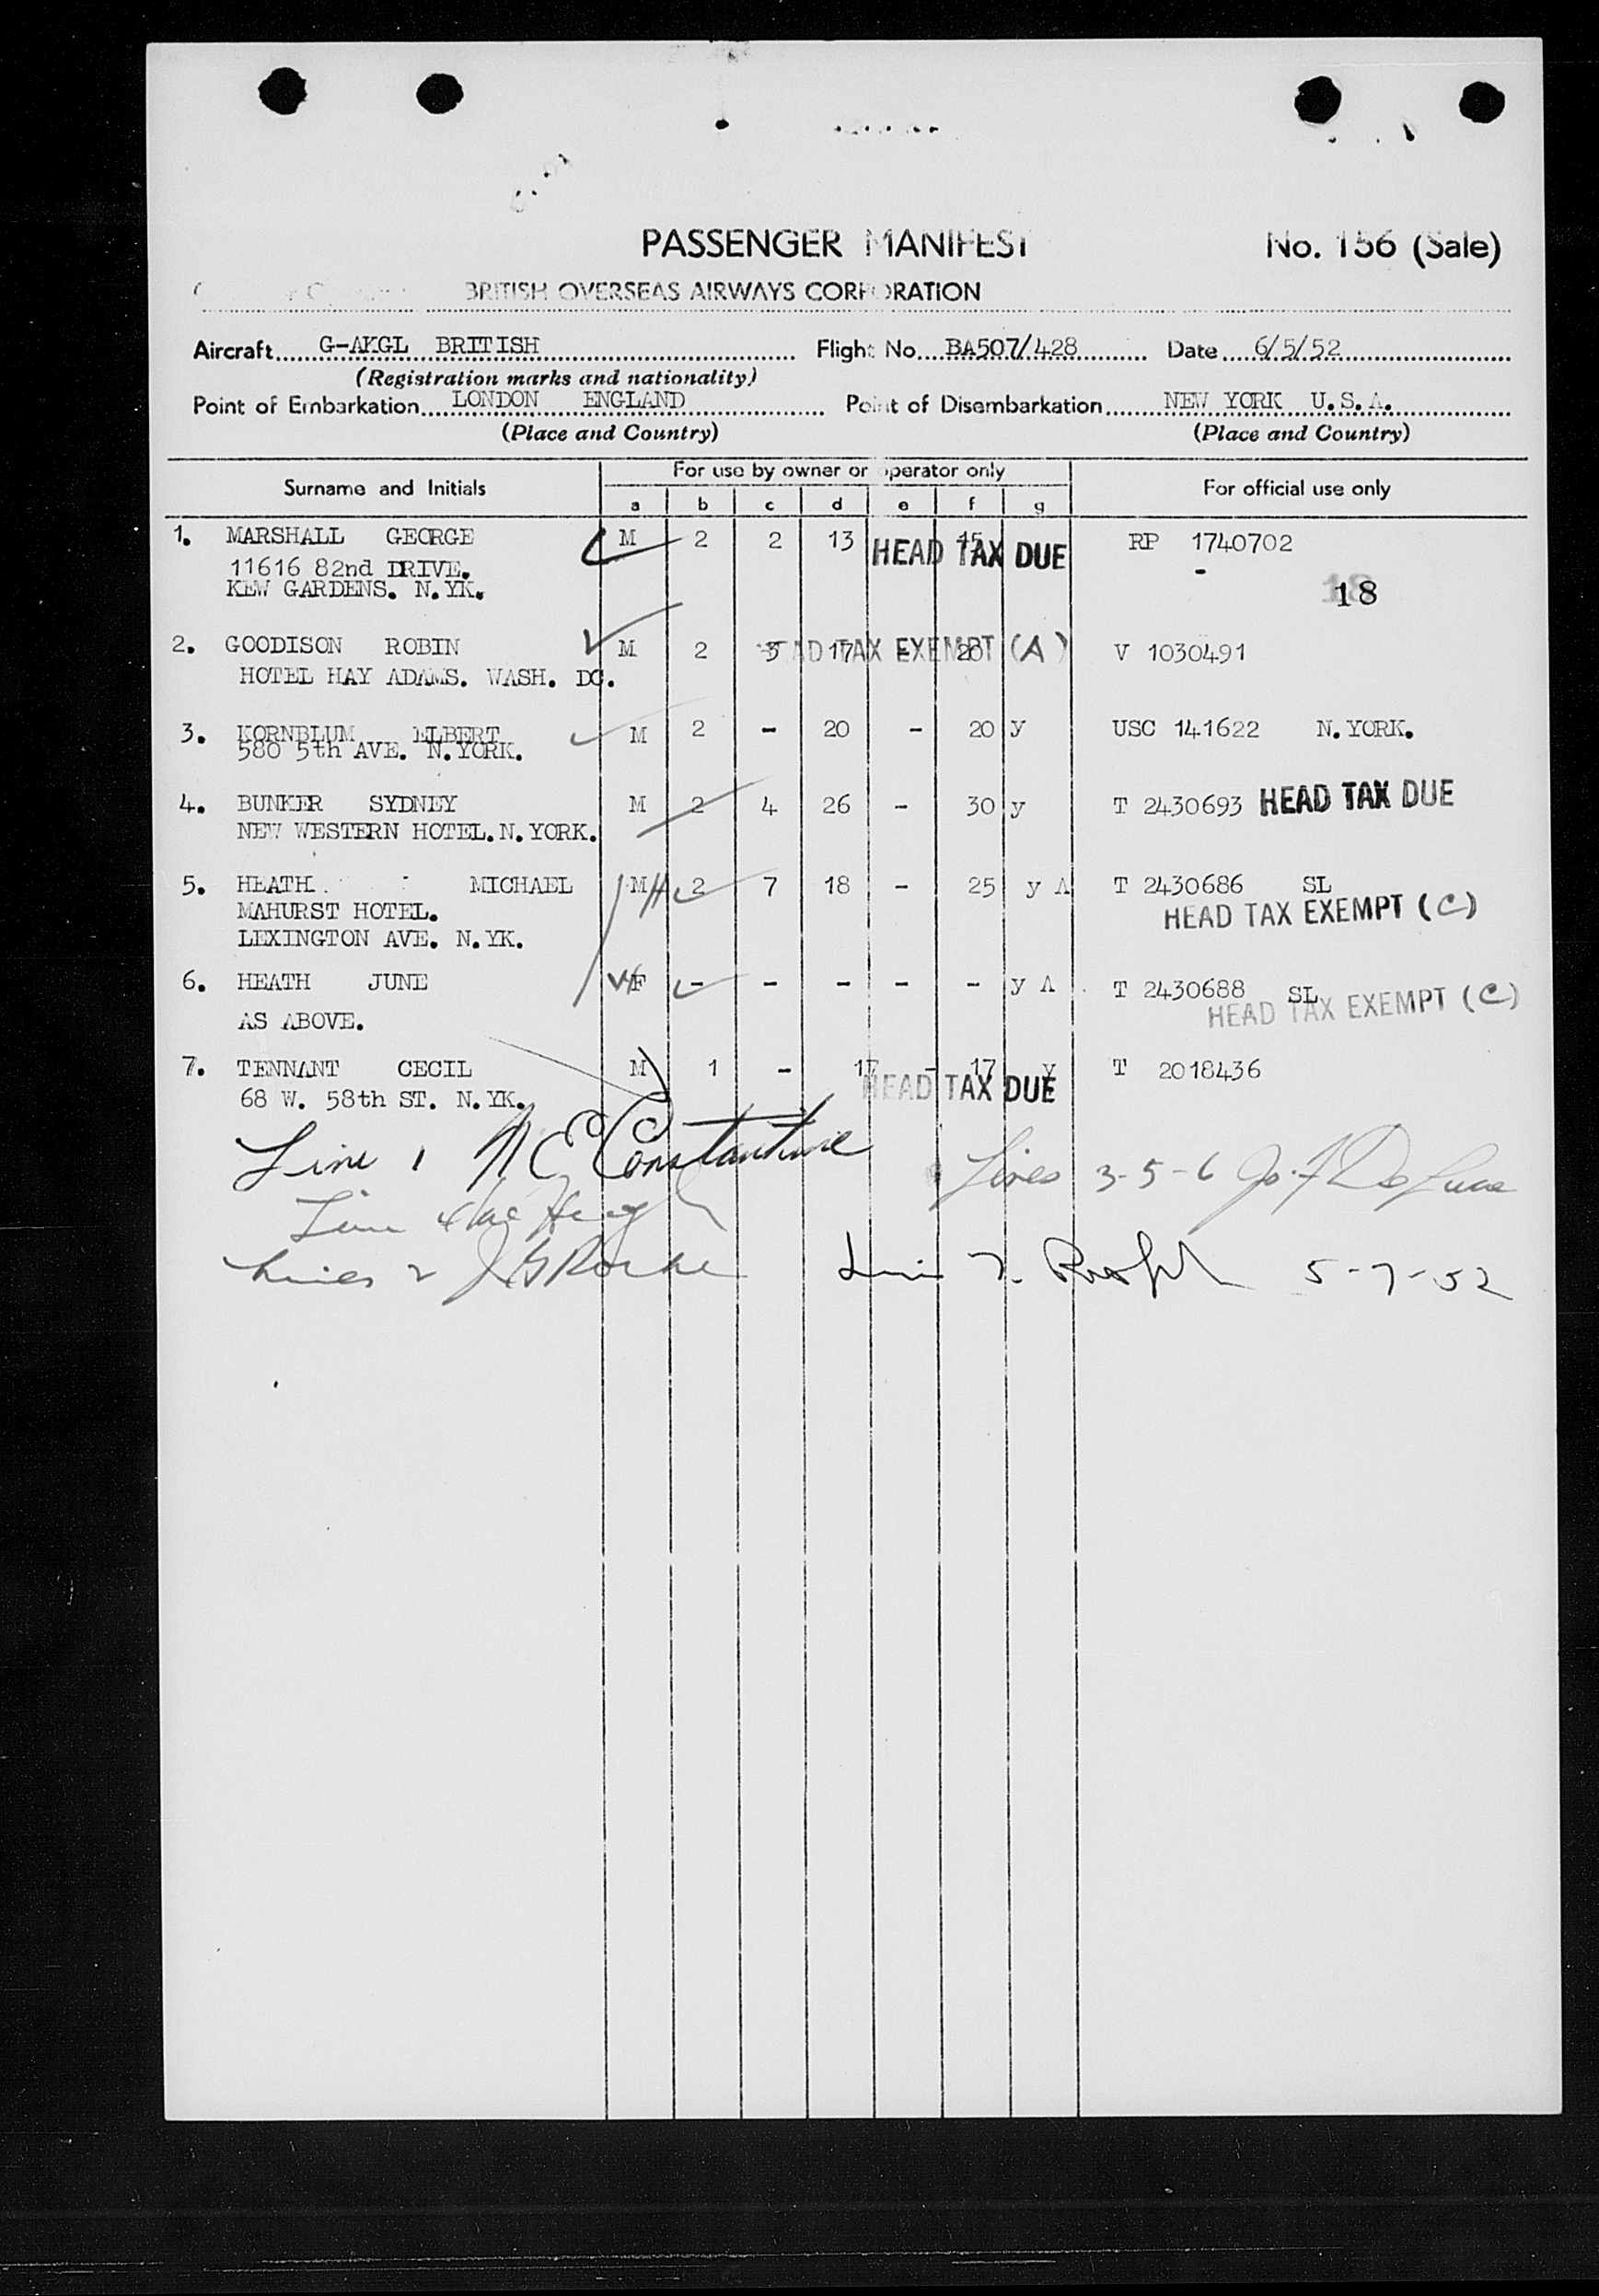 PASSENGER MANIFEST No. 156 (Sale)
BRITISH OVERSEAS AIRWAYS CORPORATION
Aircraft G-AKGL BRITISH Flight No. BA507/428 Date 6/5/52
(Registration marks and nationality)
Point of Embarkation LONDON ENGLAND Point of Disembarkation NEW YORK U.S.A.
(Place and Country) (Place and Country)
For use by owner or operator only
Surname and Initials For official use only
a b c d e f g
1. MARSHALL GEORGE M 2 2 13 15 RP 1740702
HEAD TAX DUE
11616 82nd DRIVE.
KEW GARDENS. N.YK. 18
2. GOODISON ROBIN M 2 3 17 - 20 V 1030491
HEAD TAX EXEMPT (A)
HOTEL HAY ADAMS. WASH. DC.
3. KORNBLUM ELBERT M 2 - 20 - 20 y USC 141622 N.YORK.
580 5th AVE. N.YORK.
4. BUNKER SYDNEY M 2 4 26 - 30 y T 2430693 HEAD TAX DUE
NEW WESTERN HOTEL. N.YORK.
5. HEATH MICHAEL M H 2 7 18 - 25 y A T 2430686 SL
MAHURST HOTEL. HEAD TAX EXEMPT (C)
LEXINGTON AVE. N.YK.
6. HEATH JUNE F - - - - - y A T 2430688 SL
HEAD TAX EXEMPT (C)
AS ABOVE.
7. TENNANT CECIL M 1 - 17 - 17 y T 2018436
HEAD TAX DUE
68 W. 58th ST. N.YK.
Line 1 N E Constantine
Lines 3-5-6 Jo. F De Luca
Line 4
Lines 2 J G Roche Line 7. 5-7-52